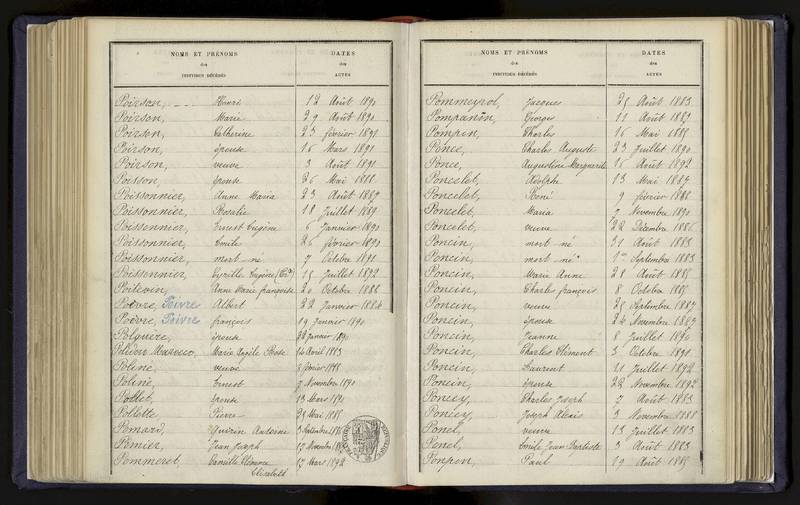 NOMS ET PRÉNOMS DATES
des des
INDIVIDUS DÉCÉDÉS ACTES
Poirson, Henri 12 Août 1890
Poirson, Marie 29 Août 1890
Poirson, Catherine 23 février 1891
Poirson, épouse 16 Mars 1891
Poirson, veuve 3 Août 1891
Poisson, épouse 26 Mai 1888
Poissonnier, Anne Maria 23 Août 1887
Poissonnier, Rosalie 18 Juillet 1889
Poissonnier, Ernest Eugène 6 Janvier 1890
Poissonnier, Emile 26 février 1890
Poissonnier, mort né 7 Octobre 1891
Poissonnier, Cyrille Eugène 15 Juillet 1892
Poitevin, Anne Marie françoise 20 Octobre 1882
Poivre, Poivre Albert 22 Janvier 1884
Poivre, Poivre françois 19 Janvier 1890
Polguère, épouse 28 Janvier 1890
Marie Rose 14 Avril 1883
Poline, veuve 3 février 1888
Poline, Ernest 7 Novembre 1890
Pollet, épouse 13 Mars 1891
Pollette, Pierre 25 Mai 1885
Pomard, Antoine
Pomier, Jean Joseph 17 Novembre
Pommeret, Camille Eléonore 17 Mars 1892
Elisabeth
NOMS ET PRÉNOMS DATES
des des
INDIVIDUS DÉCÉDÉS ACTES
Pommeyrol, Jacques 25 Août 1883
Pompanon, Georges 11 Août 1889
Pompen, Charles 16 Mai 1885
Ponce, Charles Auguste 23 Juillet 1890
Ponce, Augustine Marguerite 16 Août 1892
Poncelet, Adolphe 13 Mai 1887
Poncelet, René 9 février 1888
Poncelet, Maria 7 Novembre 1890
Poncelet, veuve 22 Décembre 1886
Poncin, mort né 31 Août 1883
Poncin, mort né 1er Septembre 1883
Poncin, Marie Anne 28 Août 1885
Poncin, Charles françois 8 Octobre 1885
Poncin, veuve 25 Septembre 1887
Poncin, épouse 24 Novembre 1887
Poncin, Jeanne 8 Juillet 1890
Poncin, Charles Clément 3 Octobre 1891
Poncin, Laurent 11 Juillet 1892
Poncin, épouse 22 Novembre 1892
Poncey, Charles Joseph 7 Août 1883
Poncey, Joseph Alexis 3 Novembre 1888
Ponel, veuve 13 Juillet 1883
Ponel, Emile Jean Baptiste 3 Août 1883
Ponpon, Paul 19 Août 1885